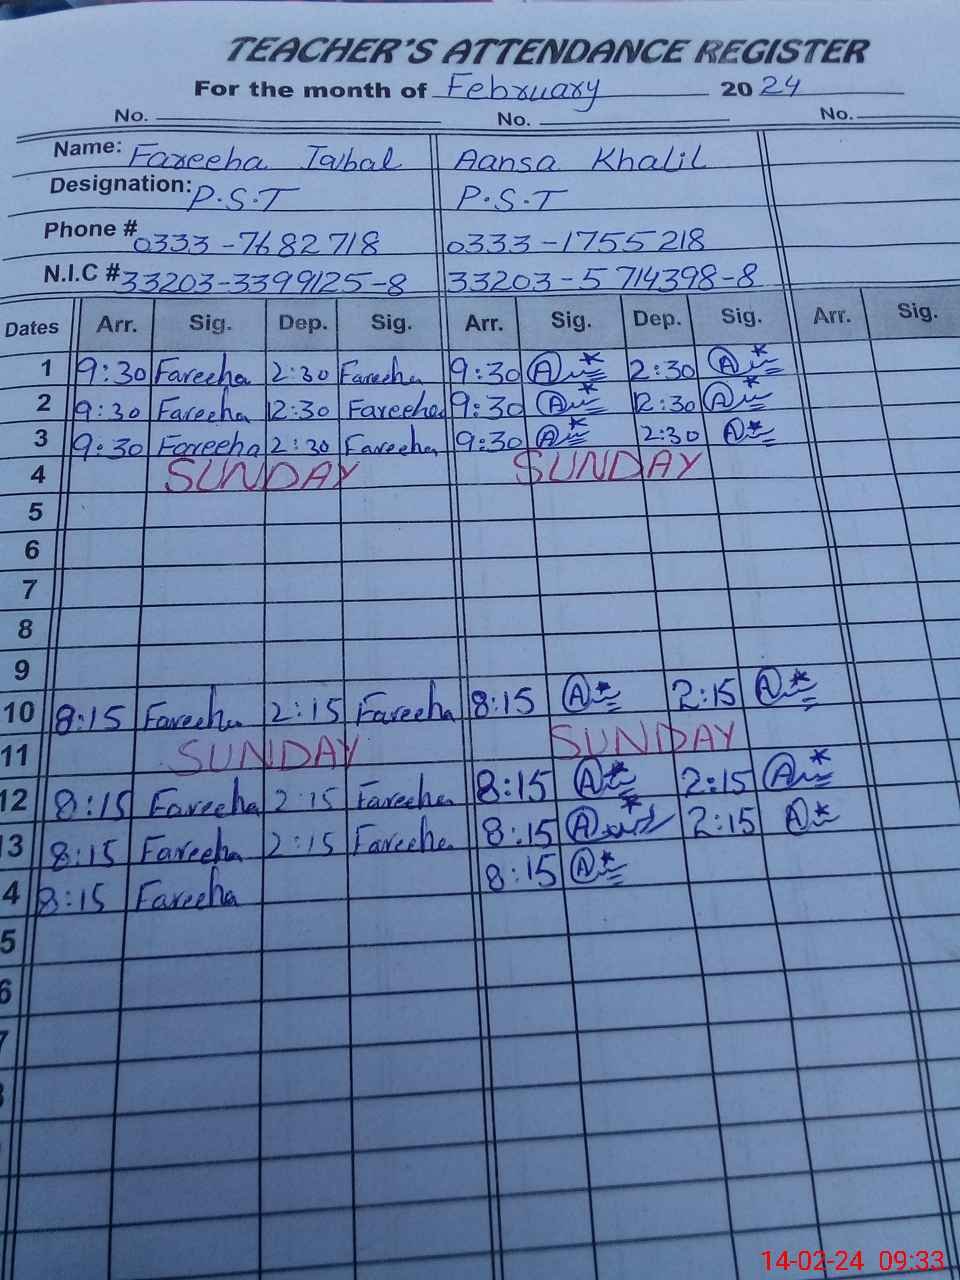 TEACHER'S ATTENDANCE REGISTER
For the month of February 2024
No. No. No.
Name: Fareeha Iqbal Aansa Khalil
Designation: P.S.T P.S.T
Phone # 0333-7682718 0333-1755218
N.I.C # 33203-3399125-8 33203-5714398-8
Dates Arr. Sig. Dep. Sig. Arr. Sig. Dep. Sig. Arr. Sig.
1 9:30 Fareeha 2:30 Fareeha 9:30 2:30
2 9:30 Fareeha 2:30 Fareeha 9:30 2:30
3 9:30 Fareeha 2:30 Fareeha 9:30 2:30
4 SUNDAY SUNDAY
5
6
7
8
9
10 8:15 Fareeha 2:15 Fareeha 8:15 2:15
11 SUNDAY SUNDAY
12 8:15 Fareeha 2:15 Fareeha 8:15 2:15
13 8:15 Fareeha 2:15 Fareeha 8:15 2:15
4 8:15 Fareeha 8:15
5
6
7
14-02-24 09:33